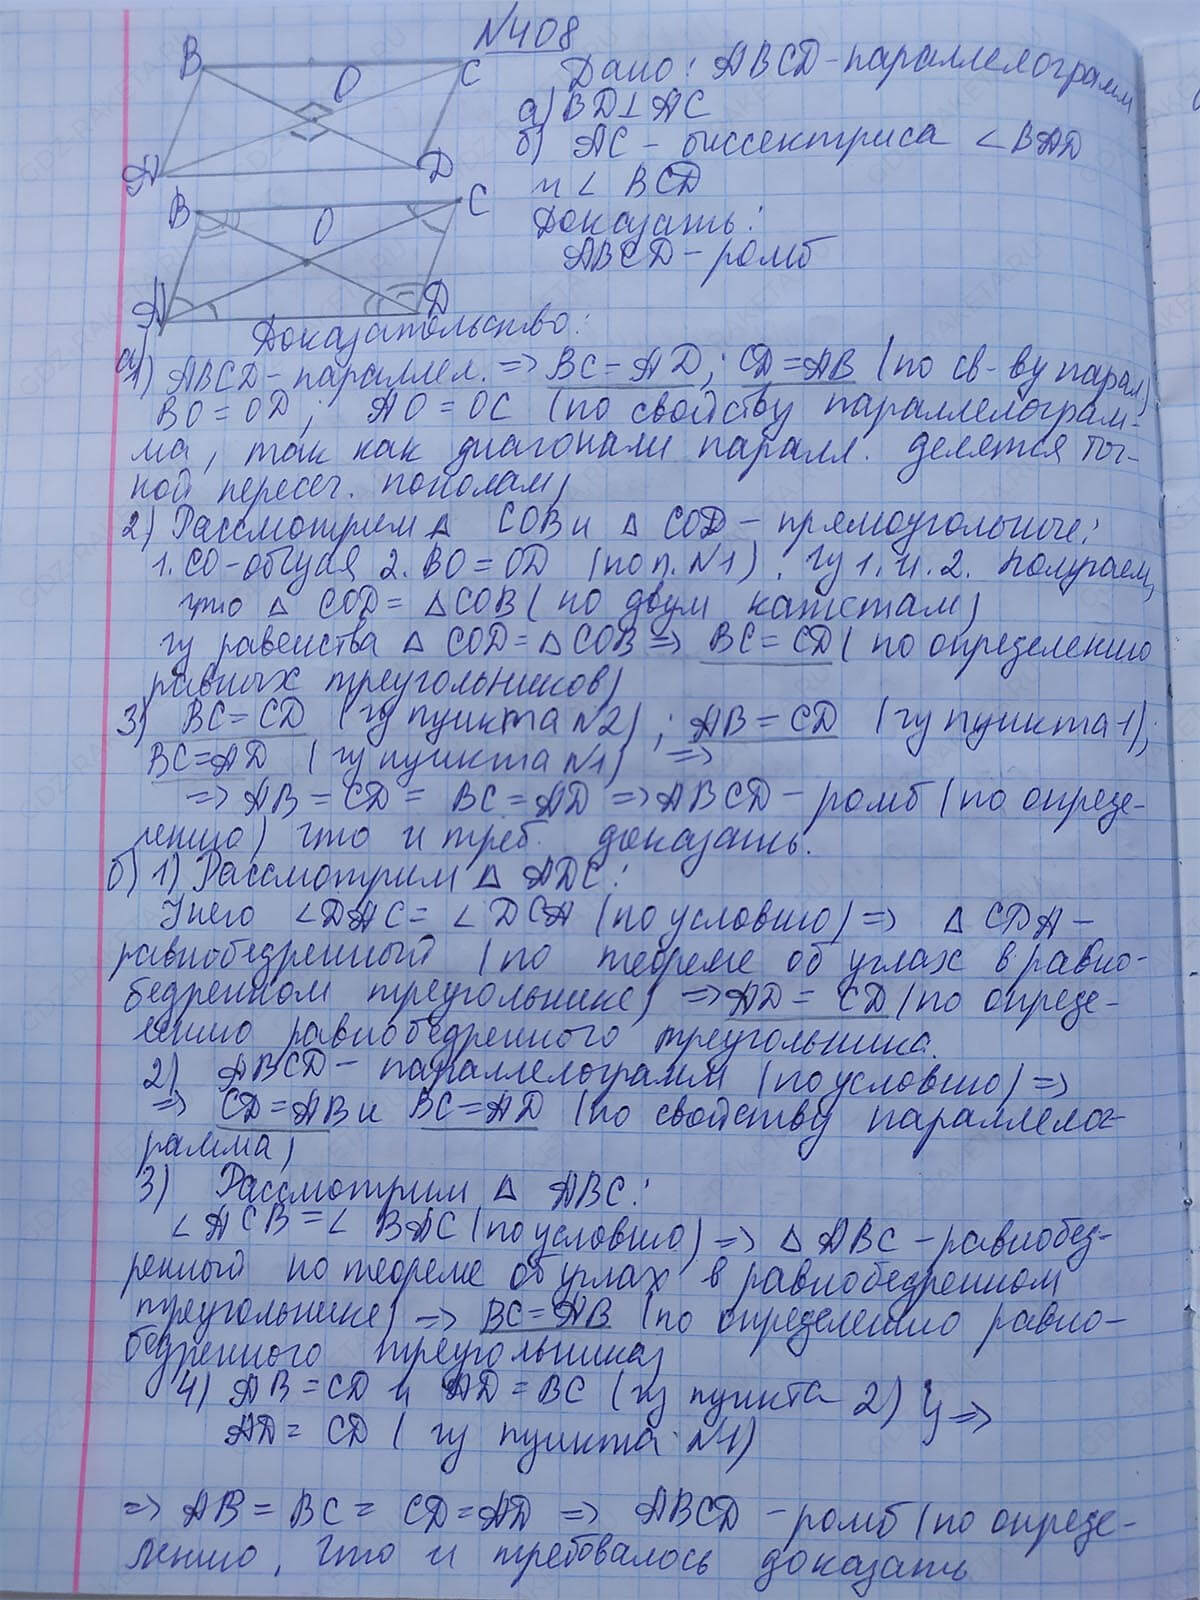 №408
B
C
O
A
D
Дано: ABCD - параллелограмм
а) BD⊥AC
б) AC - биссектриса ∠BAD
и ∠ BCD
B
C
O
A
D
Доказать:
ABCD - ромб
Доказательство:
а)
1) ABCD - параллел. => BC = AD; CD = AB (по св-ву парал)
BO = OD; AO = OC (по свойству параллелограм-
ма, так как диагонали паралл. делятся точ-
кой пересеч. пополам)
2) Рассмотрим △ COB и △ COD - прямоугольные:
1. CO - общая 2. BO = OD (по п. N1). Из 1. и. 2. получаем,
что △ COD = △ COB (по двум катетам)
из равенства △ COD = △ COB => BC = CD (по определению
равных треугольников)
3) BC = CD (из пункта N2); AB = CD (из пункта 1);
BC = AD (из пункта N1) =>
=> AB = CD = BC = AD => ABCD - ромб (по опреде-
лению) что и треб. доказать.
б) 1) Рассмотрим △ ADC:
У него ∠DAC = ∠ DCA (по условию) => △ CDA -
равнобедренный (по теореме об углах в равно-
бедренном треугольнике) => AD = CD (по опреде-
лению равнобедренного треугольника.
2) ABCD - параллелограмм (по условию) =>
=> CD = AB и BC = AD (по свойству параллелог-
рамма)
3) Рассмотрим △ ABC:
∠ ACB = ∠ BAC (по условию) => △ ABC - равнобед-
ренный по теореме об углах в равнобедренном
треугольнике) => BC = AB (по определению равно-
бедренного треугольника)
4) AB = CD и AD = BC (из пункта 2) } =>
AD = CD (из пункта N1)
=> AB = BC = CD = AD => ABCD - ромб (по опреде-
лению, что и требовалось доказать